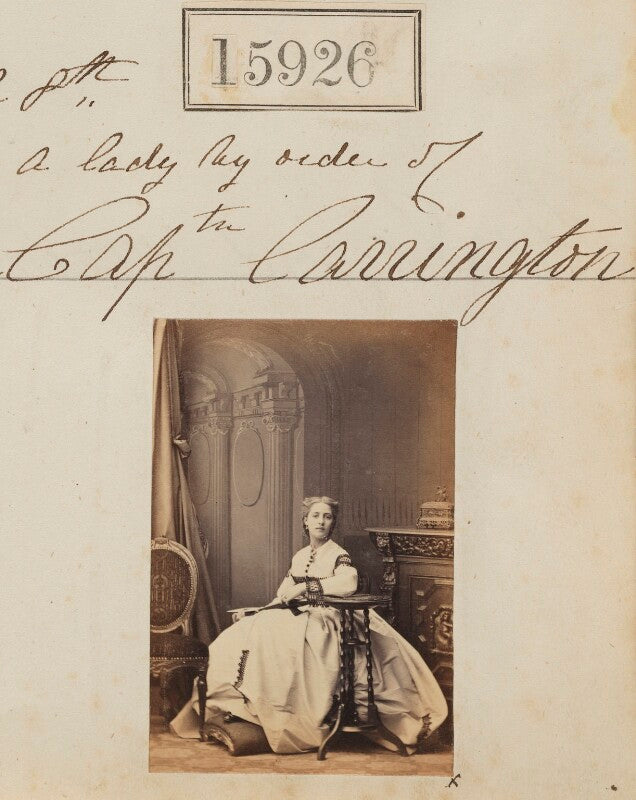 15926
8th
a lady by order of
Captn Carrington
x